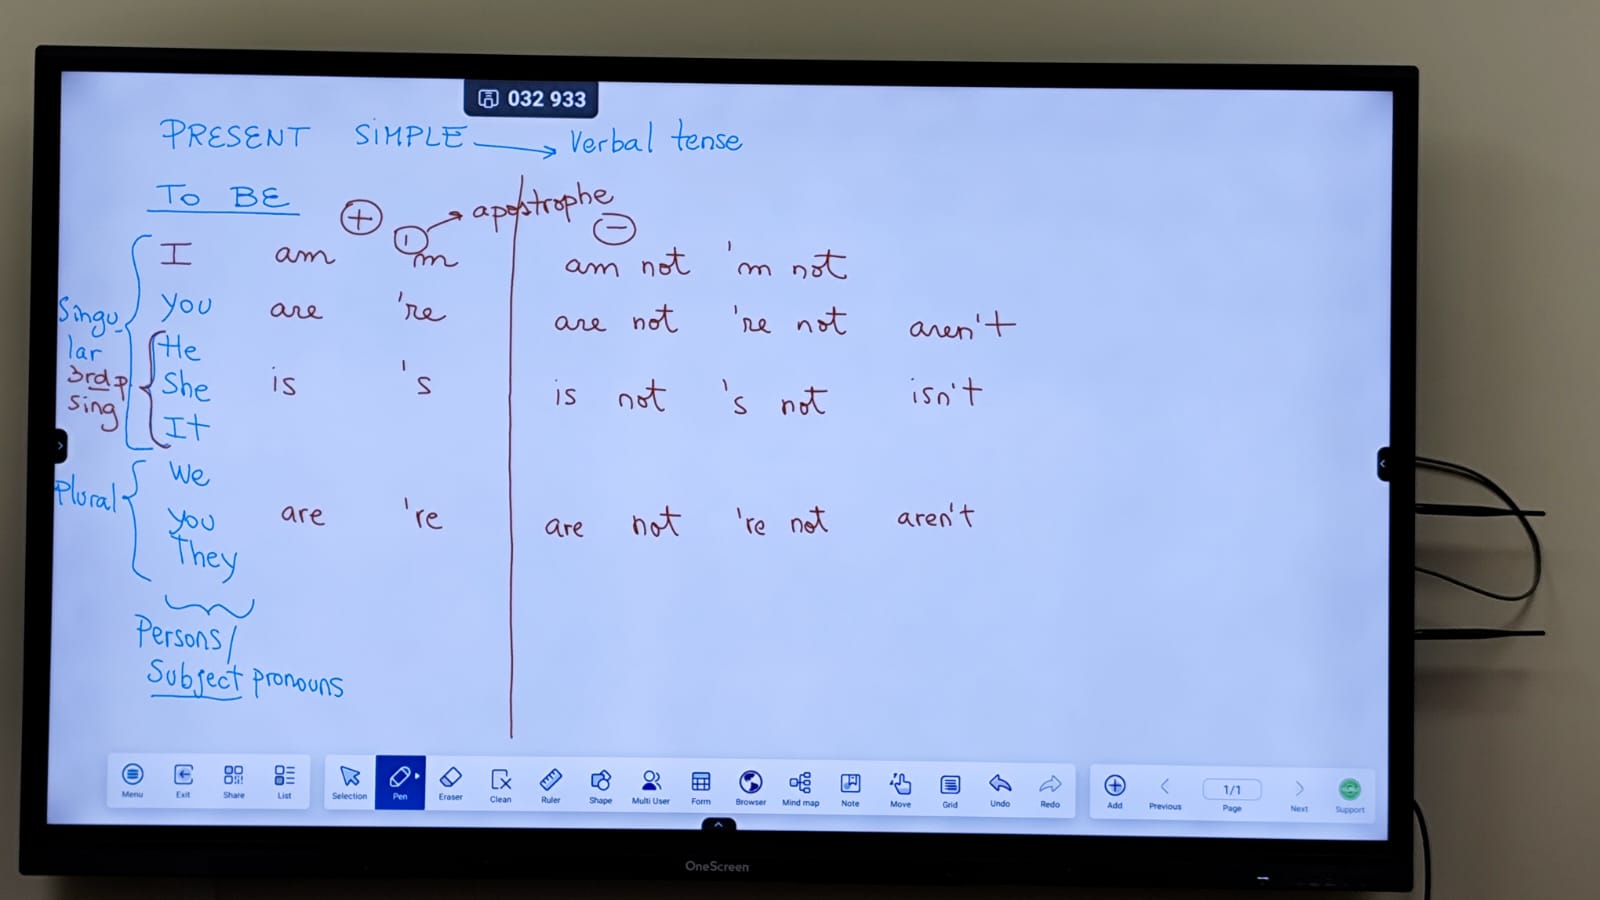 032 933
PRESENT SIMPLE → Verbal tense
TO BE
+ ' → apostrophe −
I am 'm am not 'm not
you are 're are not 're not aren't
Singu-
lar
He
3rd p.
sing
She is 's is not 's not isn't
It
We
Plural
you are 're are not 're not aren't
They
Persons/
Subject pronouns
Menu Exit Share List Selection Pen Eraser Clean Ruler Shape Multi User Form Browser Mind map Note Move Grid Undo Redo Add Previous 1/1 Page Next Support
OneScreen